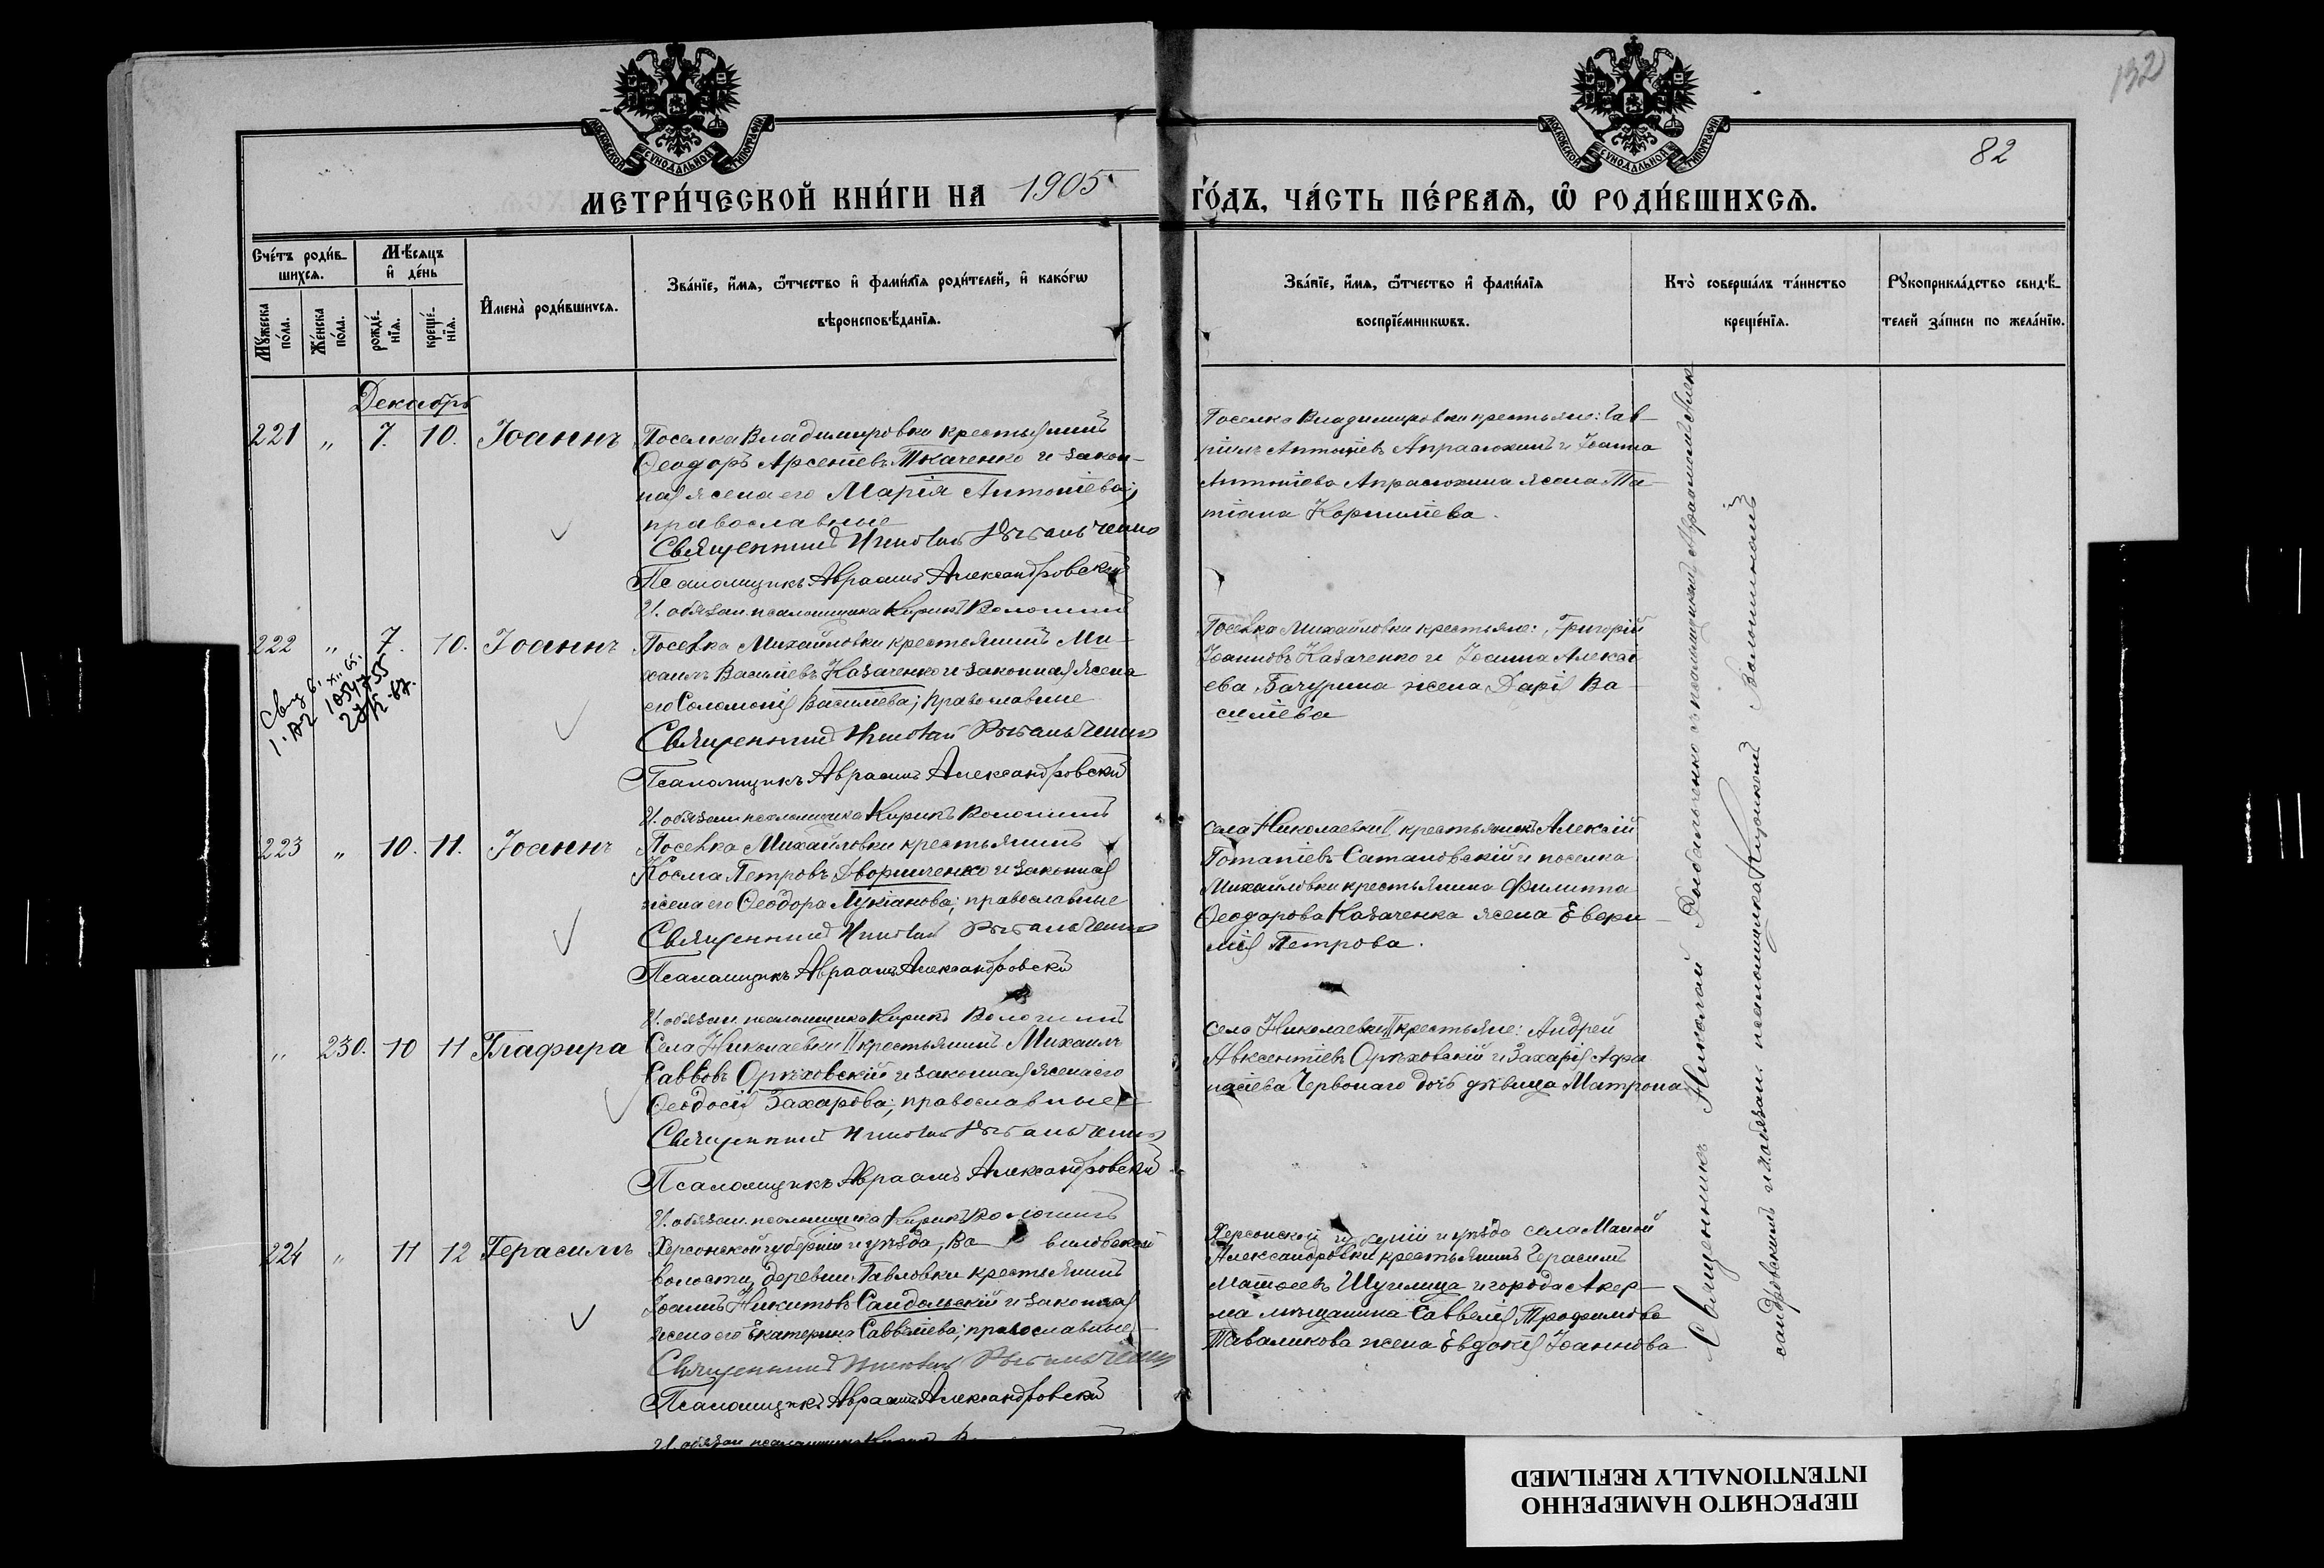 132
82
МОСКОВСКОЙ СѴНОДАЛЬНОЙ ТИПОГРАФІИ
МОСКОВСКОЙ СѴНОДАЛЬНОЙ ТИПОГРАФІИ
МЕТРИ́ЧЕСКОЙ КНИ́ГИ НА 1905 ГО́ДЪ, ЧА́СТЬ ПЕ́РВАЯ, Ѡ РОДИ́ВШИХСЯ.
Сче́тъ роди́в-
шихся.
Мѣ́сяцъ
и҆ де́нь
Мꙋ́жеска
по́ла.
Же́нска
по́ла.
рожде́-
нїя.
креще́-
нїя.
И҆мена̀ роди́вшихся.
Зва́нїе, и҆́мя, ѻ҆́тчество и҆ фами́лїя роди́телей, и҆ како́гѡ
вѣроисповѣ́данїя.
Зва́нїе, и҆́мя, ѻ҆́тчество и҆ фами́лїя
воспрїе́мникѡвъ.
Кто̀ соверша́лъ та́инство
креще́нїя.
Рꙋкоприкла́дство свидѣ́-
телей за́писи по жела́нїю.
Декабрь
221 „ 7. 10. Іоаннъ
Поселка Владимировки крестьянинъ
Ѳеодоръ Арсеніевъ Ткаченко и закон-
ная жена его Марія Антоніева;
православные
Священникъ Николай Рыбальченко
Псаломщикъ Авраамъ Александровскій
И. обязан. псаломщика Кирикъ Волошинъ
Поселка Владимировки крестьяне: Гав-
ріилъ Антоніевъ Апраснохинъ и Іоанна
Антоніева Апраснохина жена Та-
тіана Корниліева.
222 „ 7. 10. Іоаннъ
Поселка Михайловки крестьянинъ Ми-
хаилъ Василіевъ Казаченко и законная жена
его Соломонія Василіева; православные
Священникъ Николай Рыбальченко
Псаломщикъ Авраамъ Александровскій
И. обязан. псаломщика Кирикъ Волошинъ
Поселка Михайловки крестьяне: Григорій
Іоанновъ Казаченко и Іоанна Алексі-
ева Бачурина жена Дарія Ва-
силіева
223 „ 10. 11. Іоаннъ
Поселка Михайловки крестьянинъ
Косма Петровъ Дворниченко и законная
жена его Ѳеодора Лукіанова; православные
Священникъ Николай Рыбальченко
Псаломщикъ Авраамъ Александровскій
И. обязан. псаломщика Кирикъ Волошинъ
Села Николаевки II крестьянинъ Алексій
Потапіевъ Сатановскій и поселка
Михайловки крестьянина Филиппа
Ѳеодорова Казаченка жена Евфи-
мія Петрова.
„ 230. 10 11 Глафира
Села Николаевки II крестьянинъ Михаилъ
Саввовъ Орѣховскій и законная жена его
Ѳеодосія Захарова; православные
Священникъ Николай Рыбальченко
Псаломщикъ Авраамъ Александровскій
И. обязан. псаломщика Кирикъ Волошинъ
Села Николаевки II крестьяне: Андрей
Авксентіевъ Орѣховскій и Захарія Афа-
насіева Червонаго дочь дѣвица Матрона
224 „ 11 12 Герасимъ
Херсонской губерніи и уѣзда,
волости, деревни Павловки крестьянинъ
Іоаннъ Никитовъ Сандольскій и законная
жена его Екатерина Саввеліева; православные
Священникъ Николай Рыбальченко
Псаломщикъ Авраамъ Александровскій
И. обязан псаломщика Кирикъ
Херсонской губерніи и уѣзда села Малой
Александровки крестьянинъ Герасимъ
Матѳеевъ Шугилица и города Акер-
ма мѣщанина Саввелія Трофимова
Таваликова жена Евдокія Іоаннова
Священникъ Николай Рыбальченко съ псаломщикомъ Авраамомъ Алек-
сандровскимъ и и.обязан. псаломщика Волошинымъ
ПЕРЕСНЯТО НАМЕРЕННО
INTENTIONALLY REFILMED